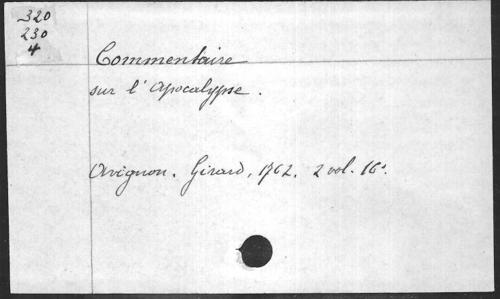 320
230
4
Commentaire
sur l'Apocalypse.
Avignon. Girard, 1762. 2 vol. 16°.